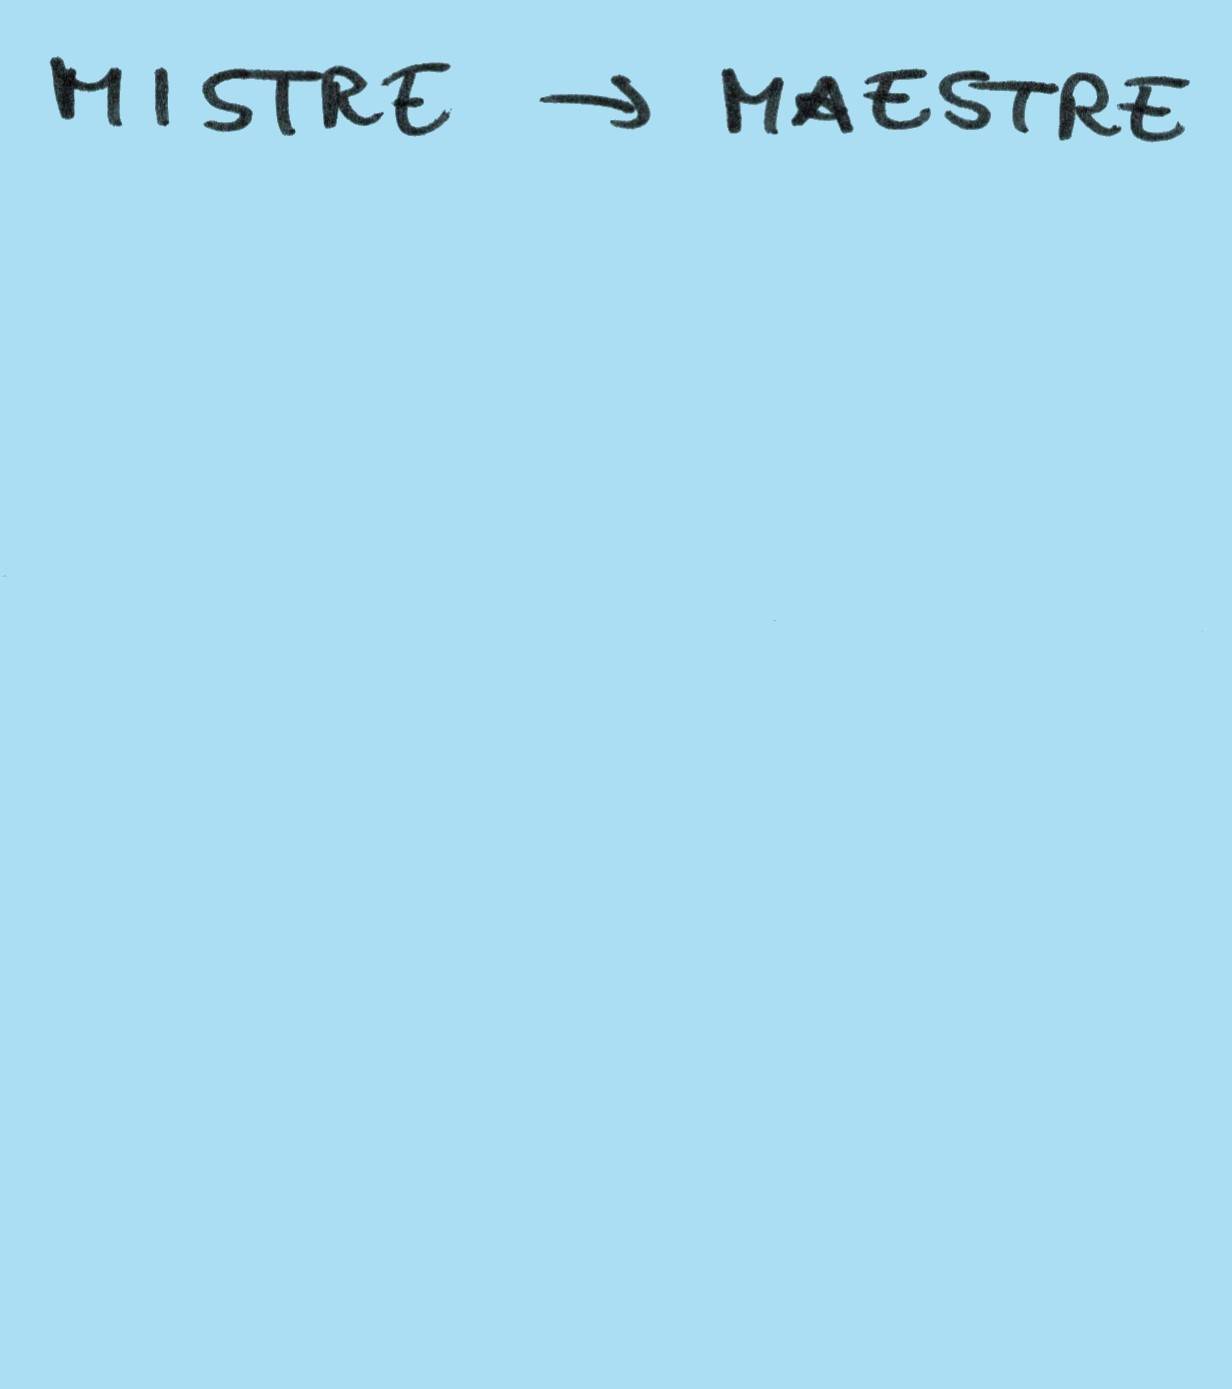 MISTRE → MAESTRE